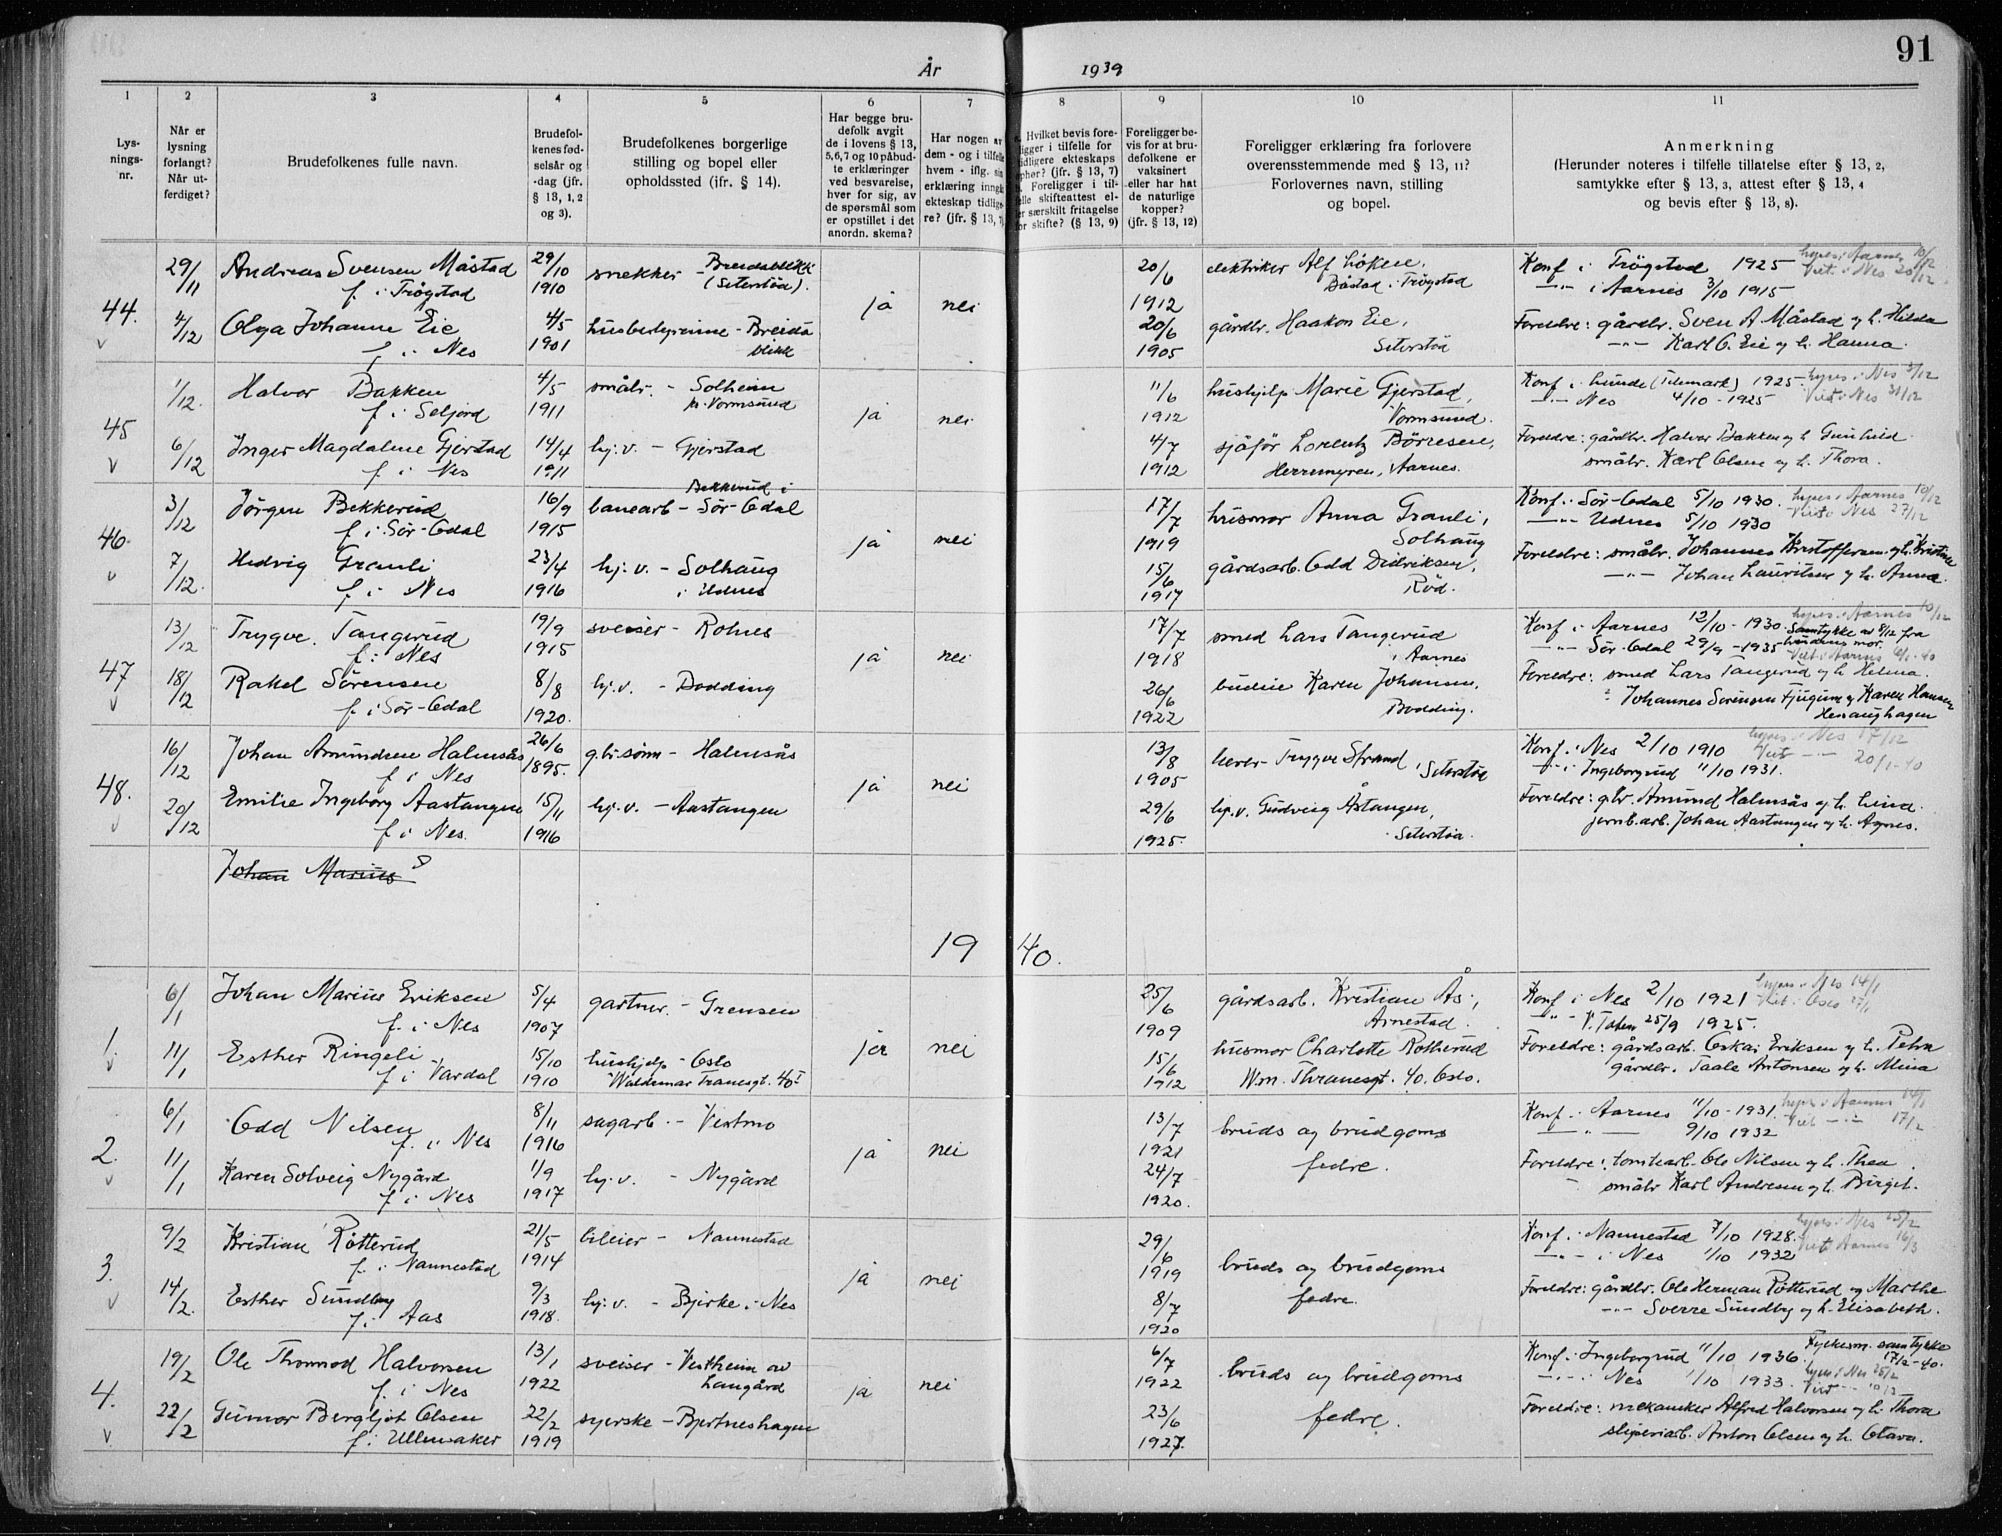 91
År 1939
1 2 3 4 5 6 7 8 9 10 11
Lys-
nings-
nr.
Når er
lysning
forlangt?
Når ut-
ferdiget?
Brudefolkenes fulle navn.
Brudefol-
kenes fød-
selsår og
-dag (jfr.
§ 13, 1, 2
og 3).
Brudefolkenes borgerlige
stilling og bopel eller
opholdssted (jfr. § 14).
Har begge bru-
defolk avgit
de i lovens § 13,
5, 6, 7 og 10 påbud-
te erklæringer
ved besvarelse,
hver for sig, av
de spørsmål som
er opstillet i det
anordn. skema?
Har nogen av
dem - og i tilfelle
hvem - iflg. sin
erklæring inngå
ekteskap tidlige-
re? (jfr. § 13, 7
Hvilket bevis fore-
ligger i tilfelle for
tidligere ekteskaps
ophør? (jfr. § 13, 7)
Foreligger i til-
felle skifteattest el-
ler særskilt fritagelse
for skifte? (§ 13, 9)
Foreligger be-
vis for at bru-
defolkene er
vaksinert
eller har hat
de naturlige
kopper?
(jfr. § 13, 12)
Foreligger erklæring fra forlovere
overensstemmende med § 13, 11?
Forlovernes navn, stilling
og bopel.
Anmerkning
(Herunder noteres i tilfelle tillatelse efter § 13, 2,
samtykke efter § 13, 3, attest efter § 13, 4
og bevis efter § 13, 8).
44. 29/11 Andreas Svensen Måstad 29/10 1910 snekker - Breidablikk (Seterstøa). ja nei 20/6 1912 elektriker Alf Løken, Båstad i Trøgstad Konf i Trøgstad 1925 Aarnes 10/12
f. i Trøgstad -"- i Aarnes 3/10 1915 Viet i Nes 20/12
4/12 Olga Johanne Eie 4/5 1901 husbestyrerinne - Breidablikk 20/6 1905 gårdbr. Haakon Eie, Seterstøa Foreldre: gårdbr. Sven A. Måstad og h. Hilda
f. i Nes -"- Karl O. Eie og h. Hanna.
45 1/12 Halvor Bakken 4/5 1911 småbr. - Solheim pr. Vormsund ja nei 11/6 1912 hushjelp Marie Gjerstad, Vormsund. Konf. i Lunde (Telemark) 1925
f. i Seljord -"- Nes 4/10 - 1925 Viet i Nes 31/12
6/12 Inger Magdalene Gjerstad 14/4 1911 hj.v. - Gjerstad 4/7 1912 sjåfør Lorentz Børresen, Herremyren, Aarnes. Foreldre: gårdbr. Halvor Bakken og h. Gunhild.
f. i Nes småbr. Karl Olsen og h. Thora.
46. 3/12 Jørgen Bekkerud 16/9 1915 banearb - Bekkerud i Sør-Odal ja nei 17/7 1919 husmor Anna Granli, Solhaug Konf. i Sør-Odal 5/10 1930. Aarnes 10/12
f. i Sør-Odal -"- Udnes 5/10 1930 Viet i Nes 27/12
7/12. Hedvig Granli 23/4 1916 hj.v. - Solhaug i Udnes 15/6 1917 gårdsarb. Odd Didriksen, Rød. Foreldre: småbr. Johannes Kristoffersen og h. Kristine
f. i Nes -"- Johan Lauritsen og h. Anna.
47 13/12 Trygve Tangerud 19/9 1915 sveiser - Rolnes ja nei 17/7 1918 smed Lars Tangerud i Aarnes Konf i Aarnes 12/10 - 1930. Aarnes 10/12
f. i Nes -"- Sør-Odal 29/9 - 1935 Samtykke av 8/12 fra brudens mor.
18/12 Rakel Sørensen 8/8 1920. hj.v. - Dodding 26/6 1922 budeie Karen Johansen, Bodding. Foreldre: smed Lars Tangerud og h. Helma.
f. i Sør-Odal Johannes Sørensen Fjugum og Karen Hansen
Henaughagen
48. 16/12 Johan Amundsen Halmsås 26/6 1895. gbr.sønn - Halmsås ja nei 13/8 1905 lærer Trygve Strand, Seterstøa Konf. i Nes 2/10 1910 Nes 17/12
f. i Nes -"- i Ingeborgrud 11/10 1931. Viet -"- 20/1-40
20/12 Emilie Ingeborg Aastangen 15/11 1916 hj.v. - Aastangen 29/6 1925. hj.v. Gudveig Åstangen, Seterstøa Foreldre: gbr. Amund Halmsås og h. Lina.
f. i Nes. jernb.arb. Johan Aastangen og h. Agnes.
Johan Marius
1940.
1. 6/1 Johan Marius Eriksen 5/4 1907 gartner - Grensen ja nei 25/6 1909 gårdsarb. Kristian Ås, Arnestad. Konf i Nes 2/10 1921 Nes 14/1
f. i Nes -"- V. Toten 25/9 1925. Viet i Oslo 27/1
11/1 Esther Ringeli 15/10 1910 hushjelp - Oslo Waldemar Tranesgt. 40 I 15/6 1912 husmor Charlotte Rotherud Wm. Thranesgt. 40. Oslo. Foreldre: gårdsarb. Oskar Eriksen og h. Petra
f. i Vardal gårdbr. Taale Antonsen og h. Mina
2. 6/1 Odd Nilsen 8/11 1916 sagarb. - Vestmo ja nei 13/7 1921 bruds og brudgoms fedre. Konf. i Aarnes 11/10 - 1931. Aarnes 14/1
f. i Nes -"- 9/10 1932 Viet -"- 17/2
11/1 Karen Solveig Nygård 1/9 1917 hj.v. - Nygård 24/7 1920. Foreldre: tomtearb. Ole Nilsen og h. Thea.
f. i Nes småbr Karl Andresen og h. Birgit.
3. 9/2 Kristian Røtterud 21/5 1914 bileier - Nannestad ja nei 29/6 1919 bruds og brudgoms fedre. Konf. i Nannestad 7/10 1928. Nes 25/2
f. i Nannestad -"- i Nes 1/10 1932 Viet Aarnes 16/3
14/2. Esther Sundby 9/3 1918. hj.v. - Bjerke i Nes 8/7 1920 Foreldre: gårdbr. Ole Herman Røtterud og Marthe
f. i Aas -"- Sverre Sundby og h. Elisabeth.
4. 19/2 Ole Thormod Halvorsen 13/1 1922 sveiser - Vestheim av Langård ja nei 6/7 1922 bruds og brudgoms fedre. Konf. i Ingeborgrud 11/10 1936. Fylkesm. samtykke 17/2-40.
f. i Nes -"- i Nes 1/10 1933. Nes 25/2
22/2 Gunvor Bergljot Olsen 22/2 1919 syerske - Bjertneshagen 23/6 1927. Foreldre: mekaniker Alfred Halvorsen og h. Thora
f. i Ullensaker sliperiarb. Anton Olsen og h. Olava.